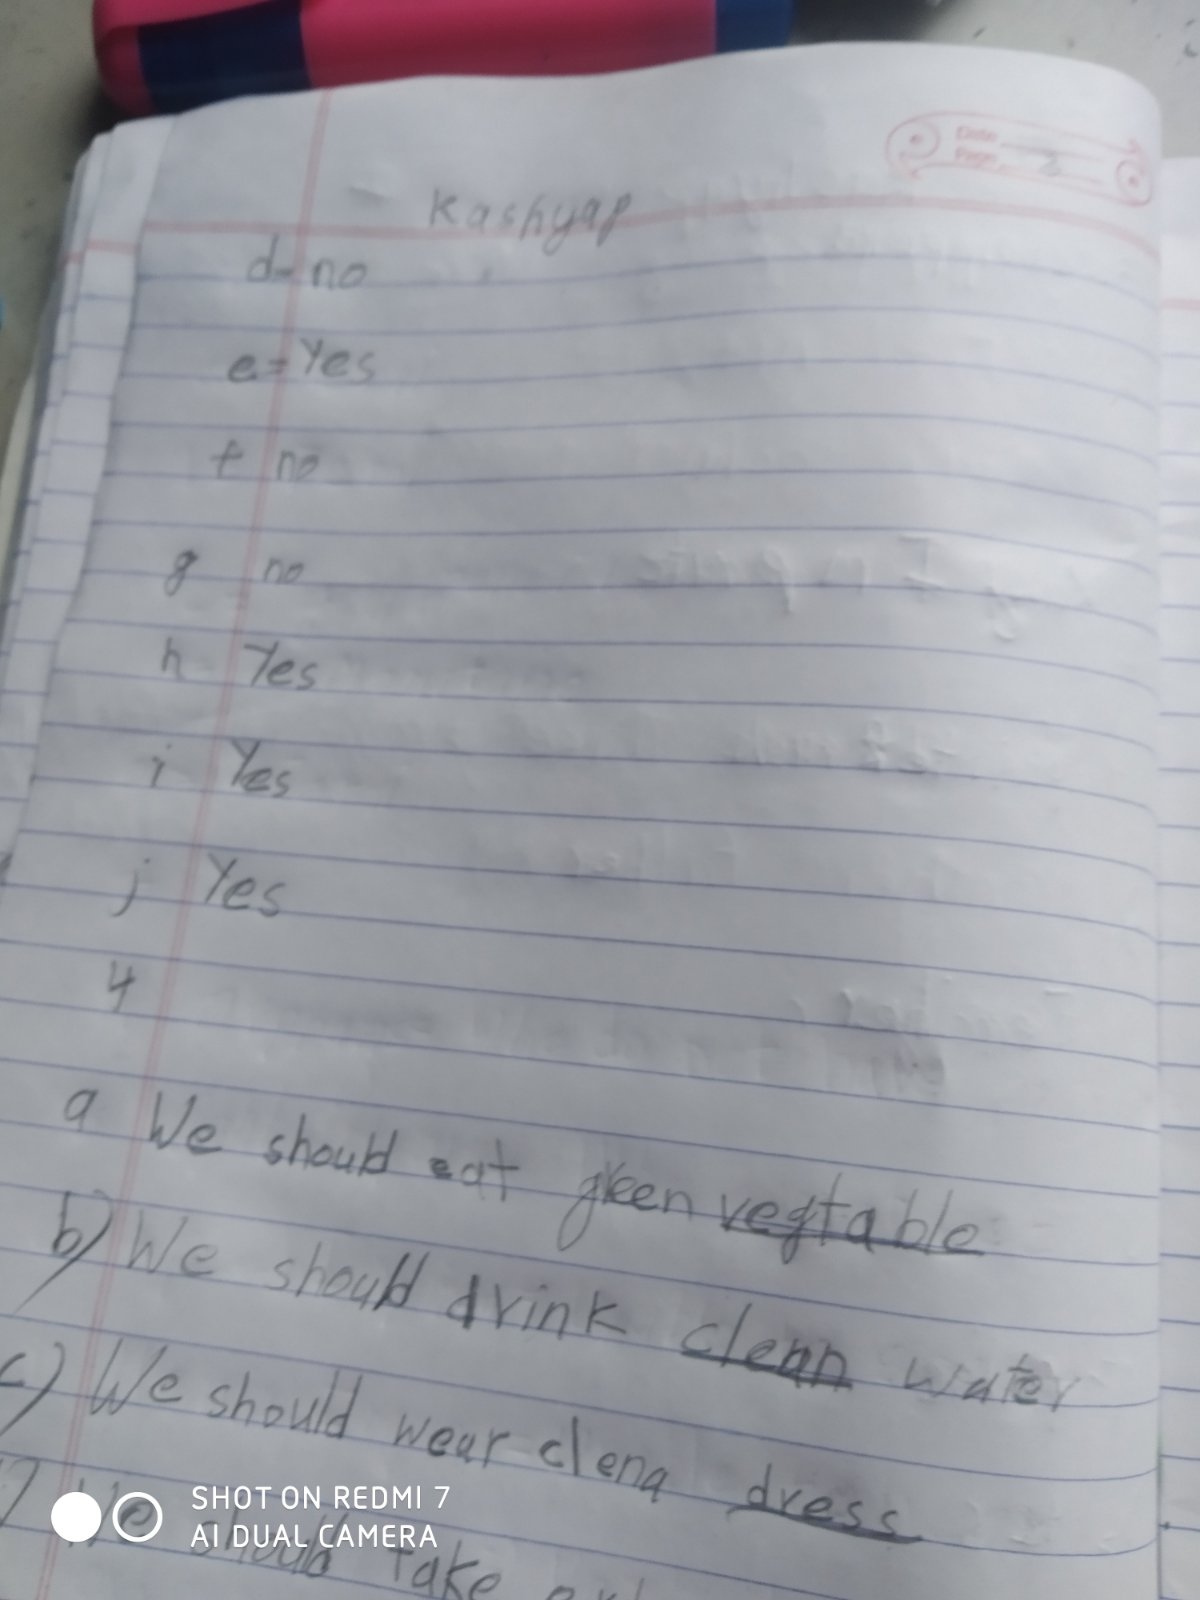 Date
Page 2
Kashyap
d- no
e= Yes
f no
g no
h Yes
i Yes
j Yes
4
a We should eat green vegtable
b) We should drink clean water
c) We should wear clena dress
We should take
SHOT ON REDMI 7
AI DUAL CAMERA